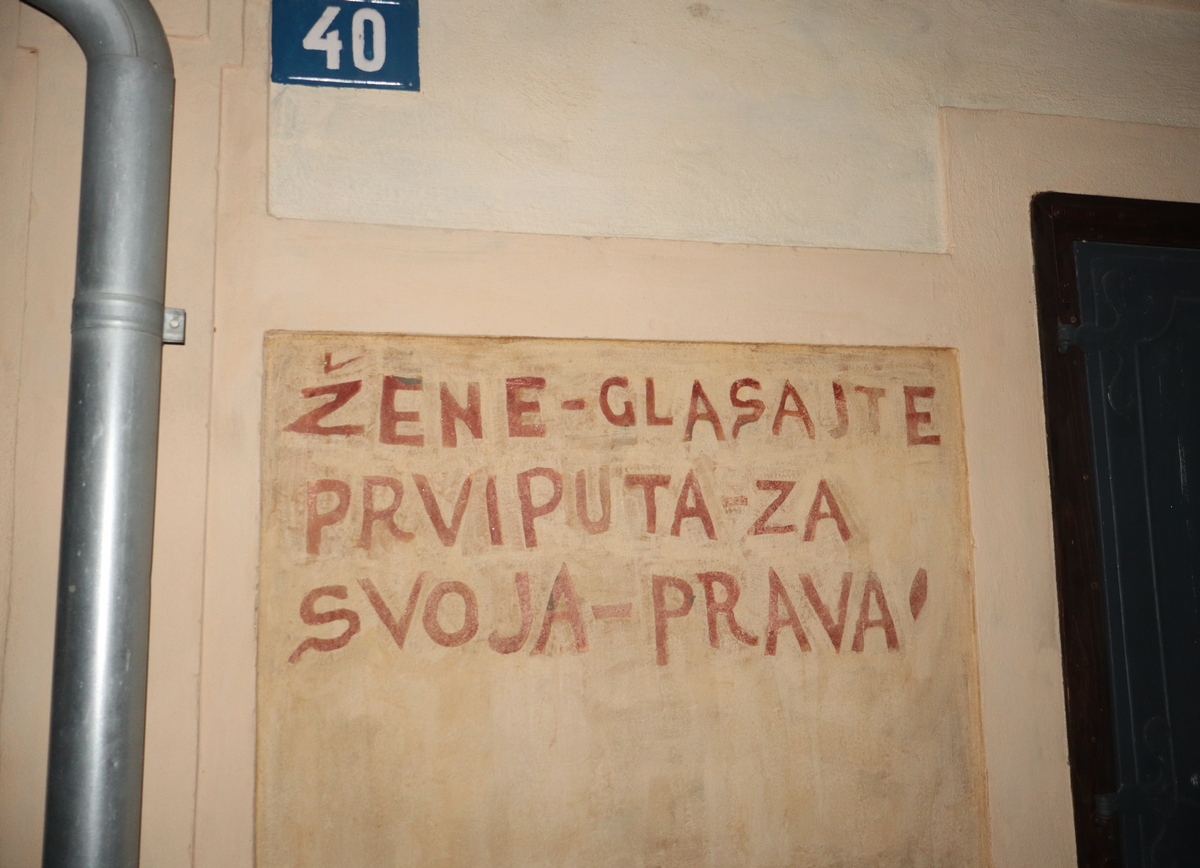 40
ŽENE-GLASAJTE
PRVIPUTA-ZA
SVOJA-PRAVA'